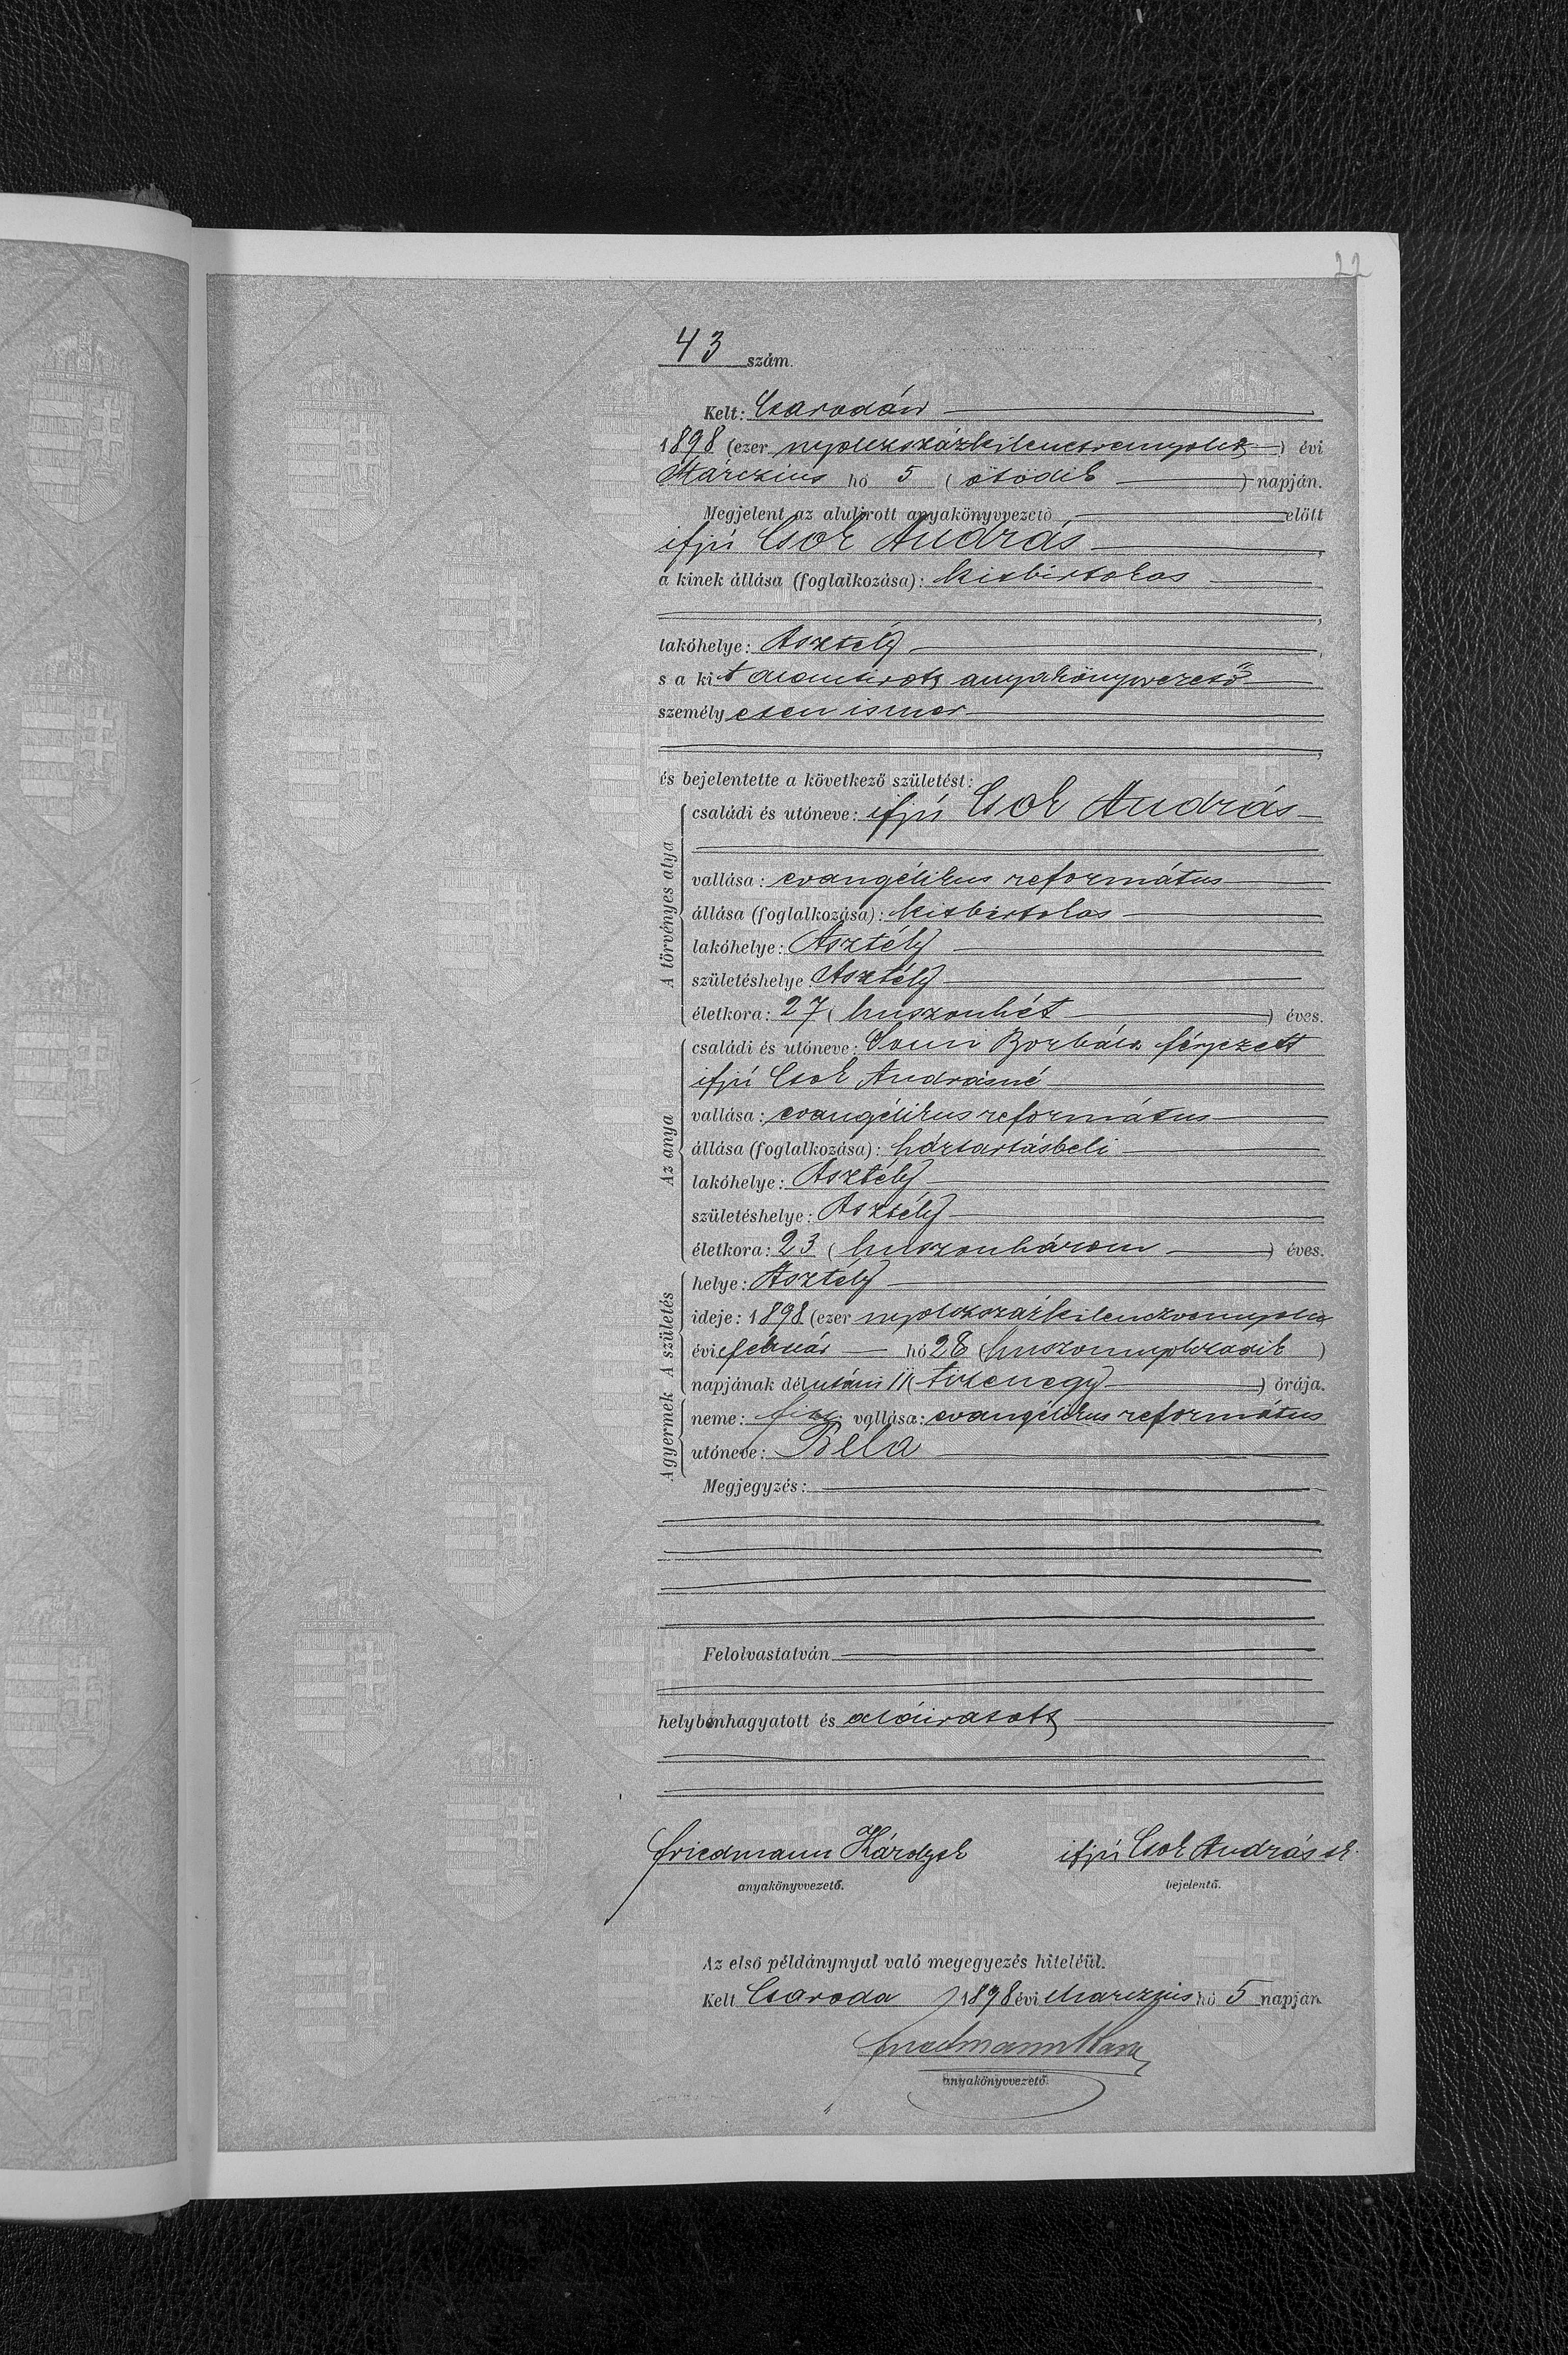 22
43 szám.
Kelt: Csarodán
1898 (ezer nyolczszázkilenczvennyolcz) évi
Márczius hó 5 (ötödik) napján.
Megjelent az alulirott anyakönyvvezető előtt
ifjú Csok András,
a kinek állása (foglalkozása): kisbirtokos
lakóhelye: Asztély,
s a kit alantirott anyakönyvvezető
személyesen ismer
és bejelentette a következő születést:
A törvényes atya
családi és utóneve: ifjú Csok András
vallása: evangélikus református
állása (foglalkozása): kisbirtokos
lakóhelye: Asztély
születéshelye: Asztély
életkora: 27 (huszonhét) éves.
Az anya
családi és utóneve: Borbála férjezett
ifjú Csok Andrásné
vallása: evangélikus református
állása (foglalkozása): háztartásbeli
lakóhelye: Asztély
születéshelye: Asztély
életkora: 23 (huszonhárom) éves.
A születés
helye: Asztély
ideje: 1898 (ezer nyolczszázkilenczvennyolcz
évi február hó 28 (huszonnyolczadik)
napjának délutáni 11 (tizenegy) órája.
A gyermek
neme: fiú; vallása: evangélikus református
utóneve: Béla
Megjegyzés:
Felolvastatván
helybenhagyatott és aláiratott
Friedmann Károly sk ifjú Csok András sk
anyakönyvvezető. bejelentő.
Az első példánynyal való megegyezés hiteléül.
Kelt Csaroda, 1898 évi Marczius hó 5 napján
Friedmann
anyakönyvvezető.